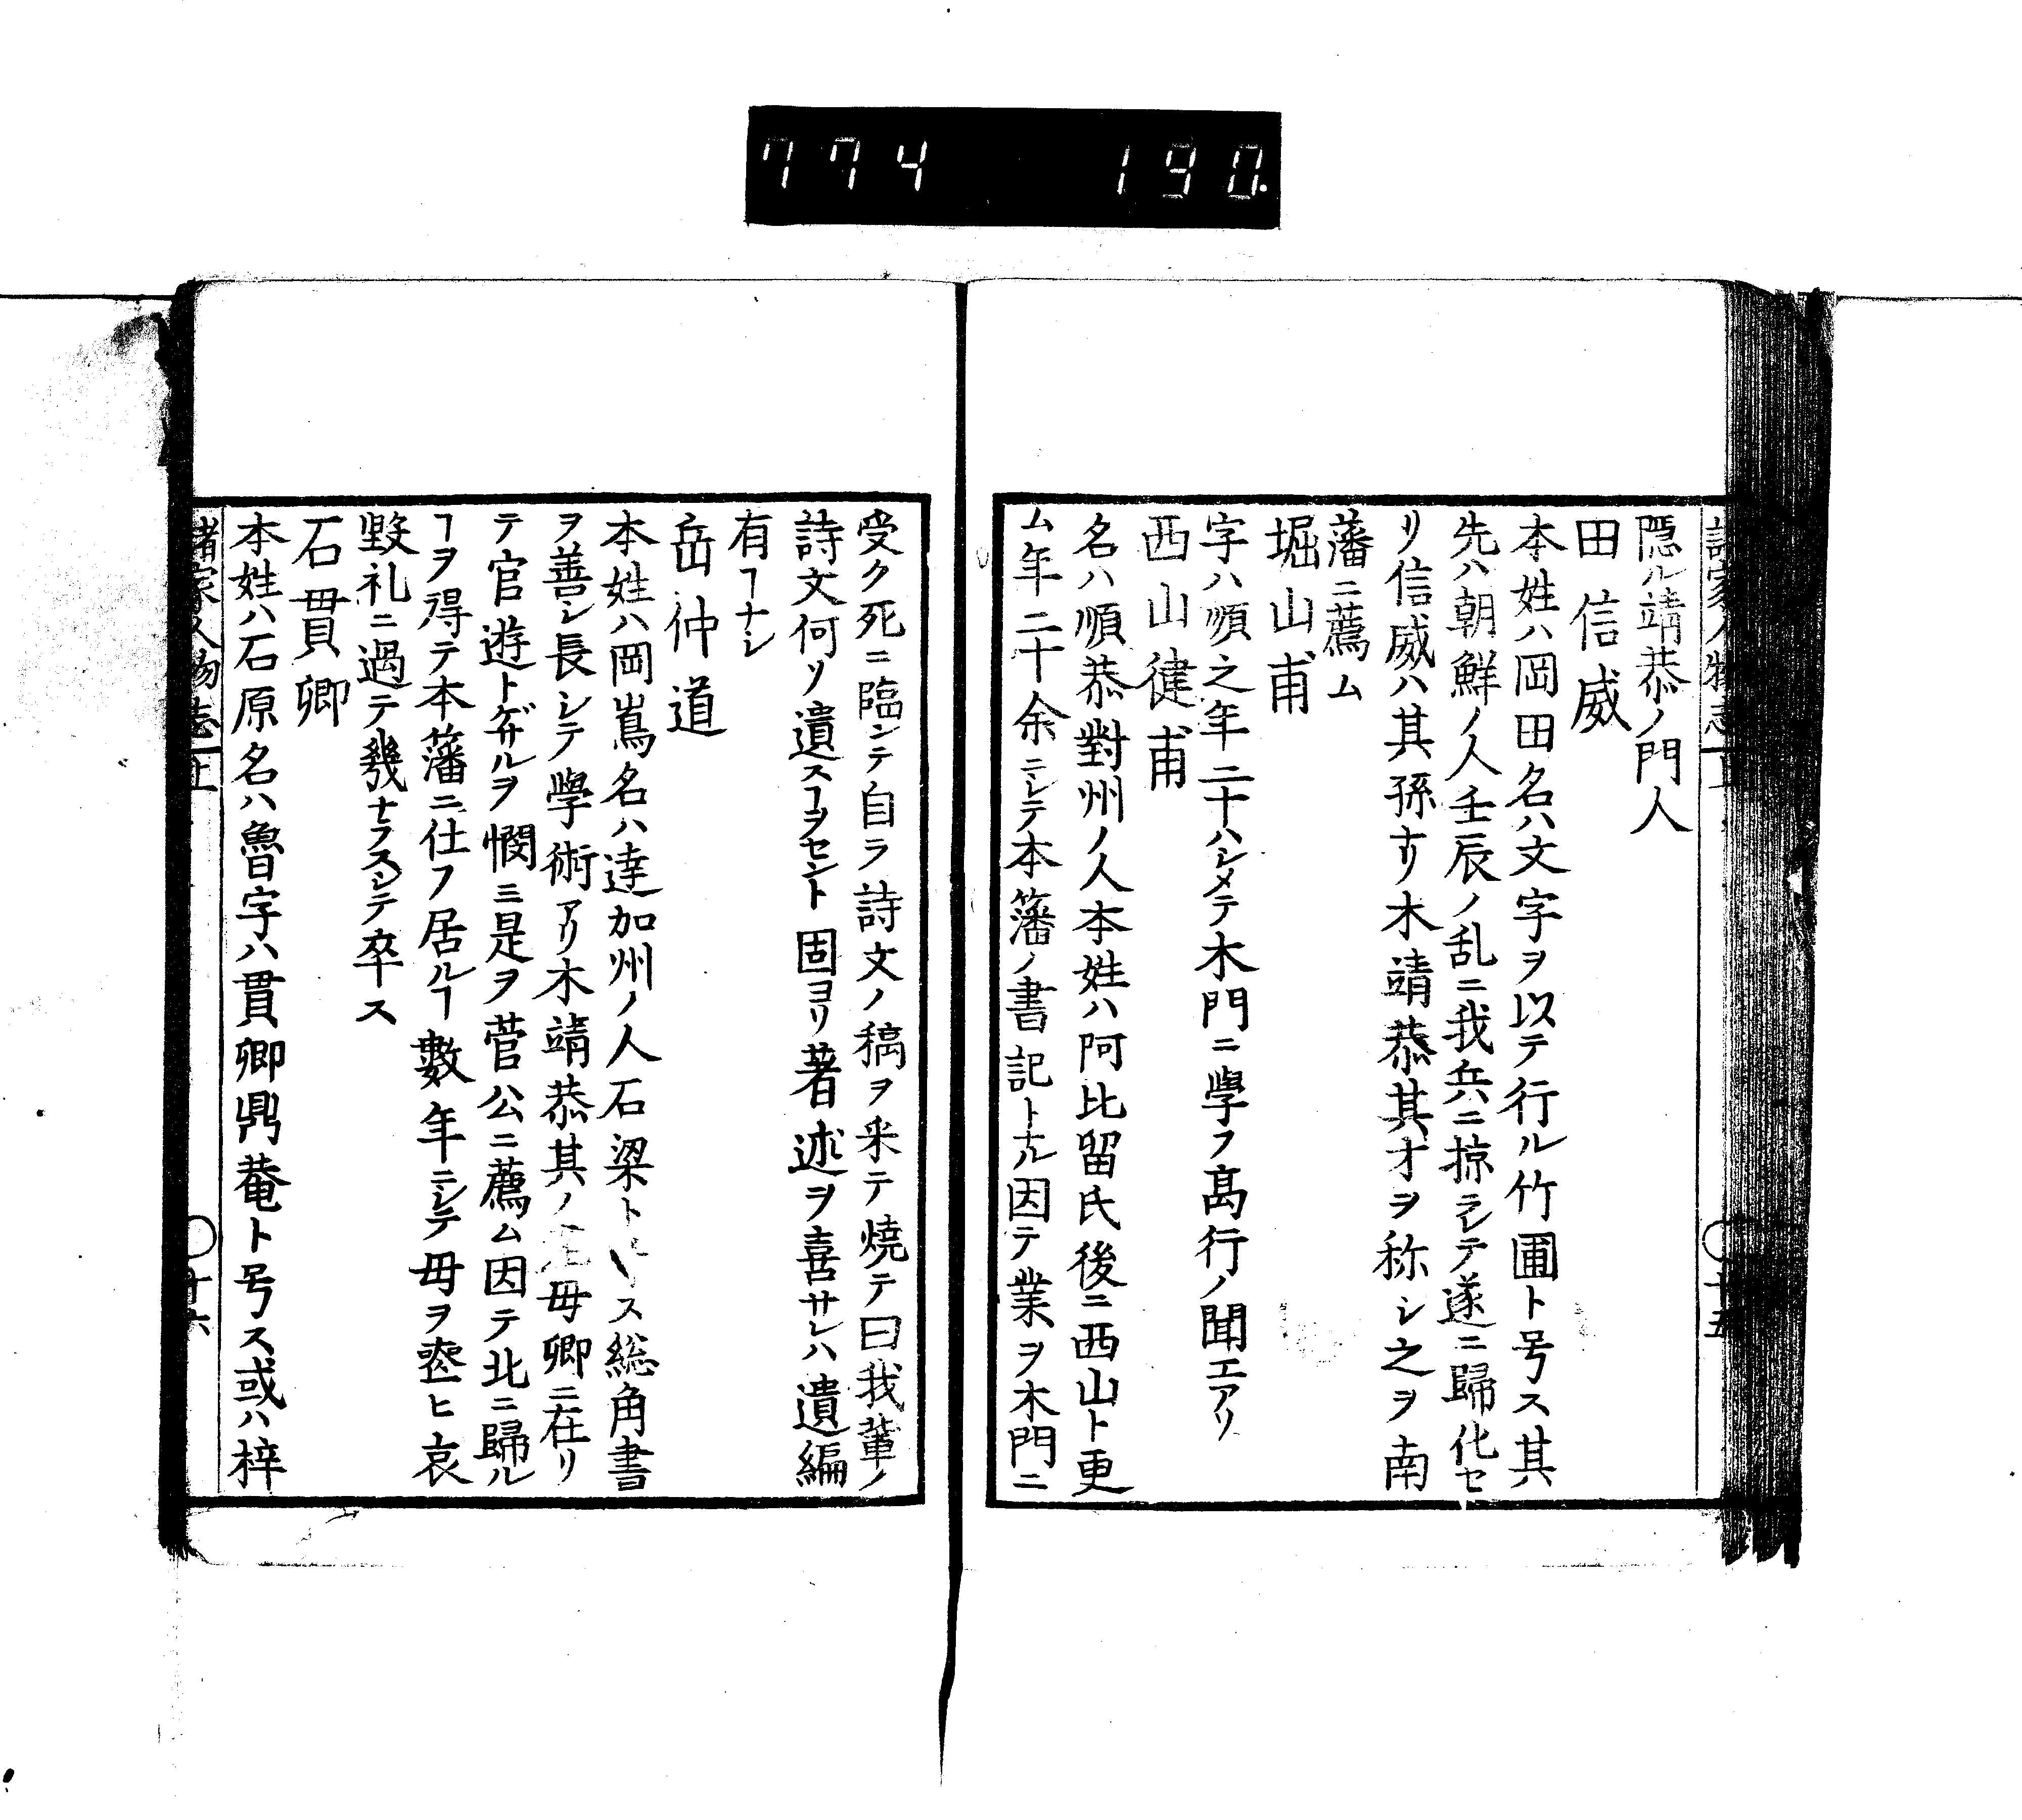 774 190.
隱ル靖恭ノ門人
田信威
本姓ハ岡田名ハ文字ヲ以テ行ル竹圃ト号ス其
先ハ朝鮮ノ人壬辰ノ乱ニ我兵ニ掠ラレテ遂ニ歸化セ
リ信威ハ其孫ナリ木靖恭其才ヲ称シ之ヲ南
藩ニ薦ム
堀山甫
字ハ順之年二十ハシメテ木門ニ學フ髙行ノ聞エアリ
西山健甫
名ハ順恭對州ノ人本姓ハ阿比留氏後ニ西山ト更
ム年二十余ニシテ本藩ノ書記トナル因テ業ヲ木門ニ
受ク死ニ臨ンテ自ラ詩文ノ稿ヲ采テ焼テ曰我輩ノ
詩文何ソ遺スヿヲセント固ヨリ著述ヲ喜サレハ遺編
有ヿナシ
岳仲道
本姓ハ岡嶌名ハ達加州ノ人石梁ト号ス総角書
ヲ善シ長シテ學術アリ木靖恭其ノ老母郷ニ在リ
テ官遊トゲザルヲ憫ミ是ヲ菅公ニ薦ム因テ北ニ歸ル
ヿヲ得テ本藩ニ仕フ居ルヿ數年ニシテ母ヲ喪ヒ哀
毀礼ニ過テ幾ナラスシテ卒ス
石貫卿
本姓ハ石原名ハ魯字ハ貫卿鼎菴ト号ス或ハ梓
諸家人物志上 〇十六